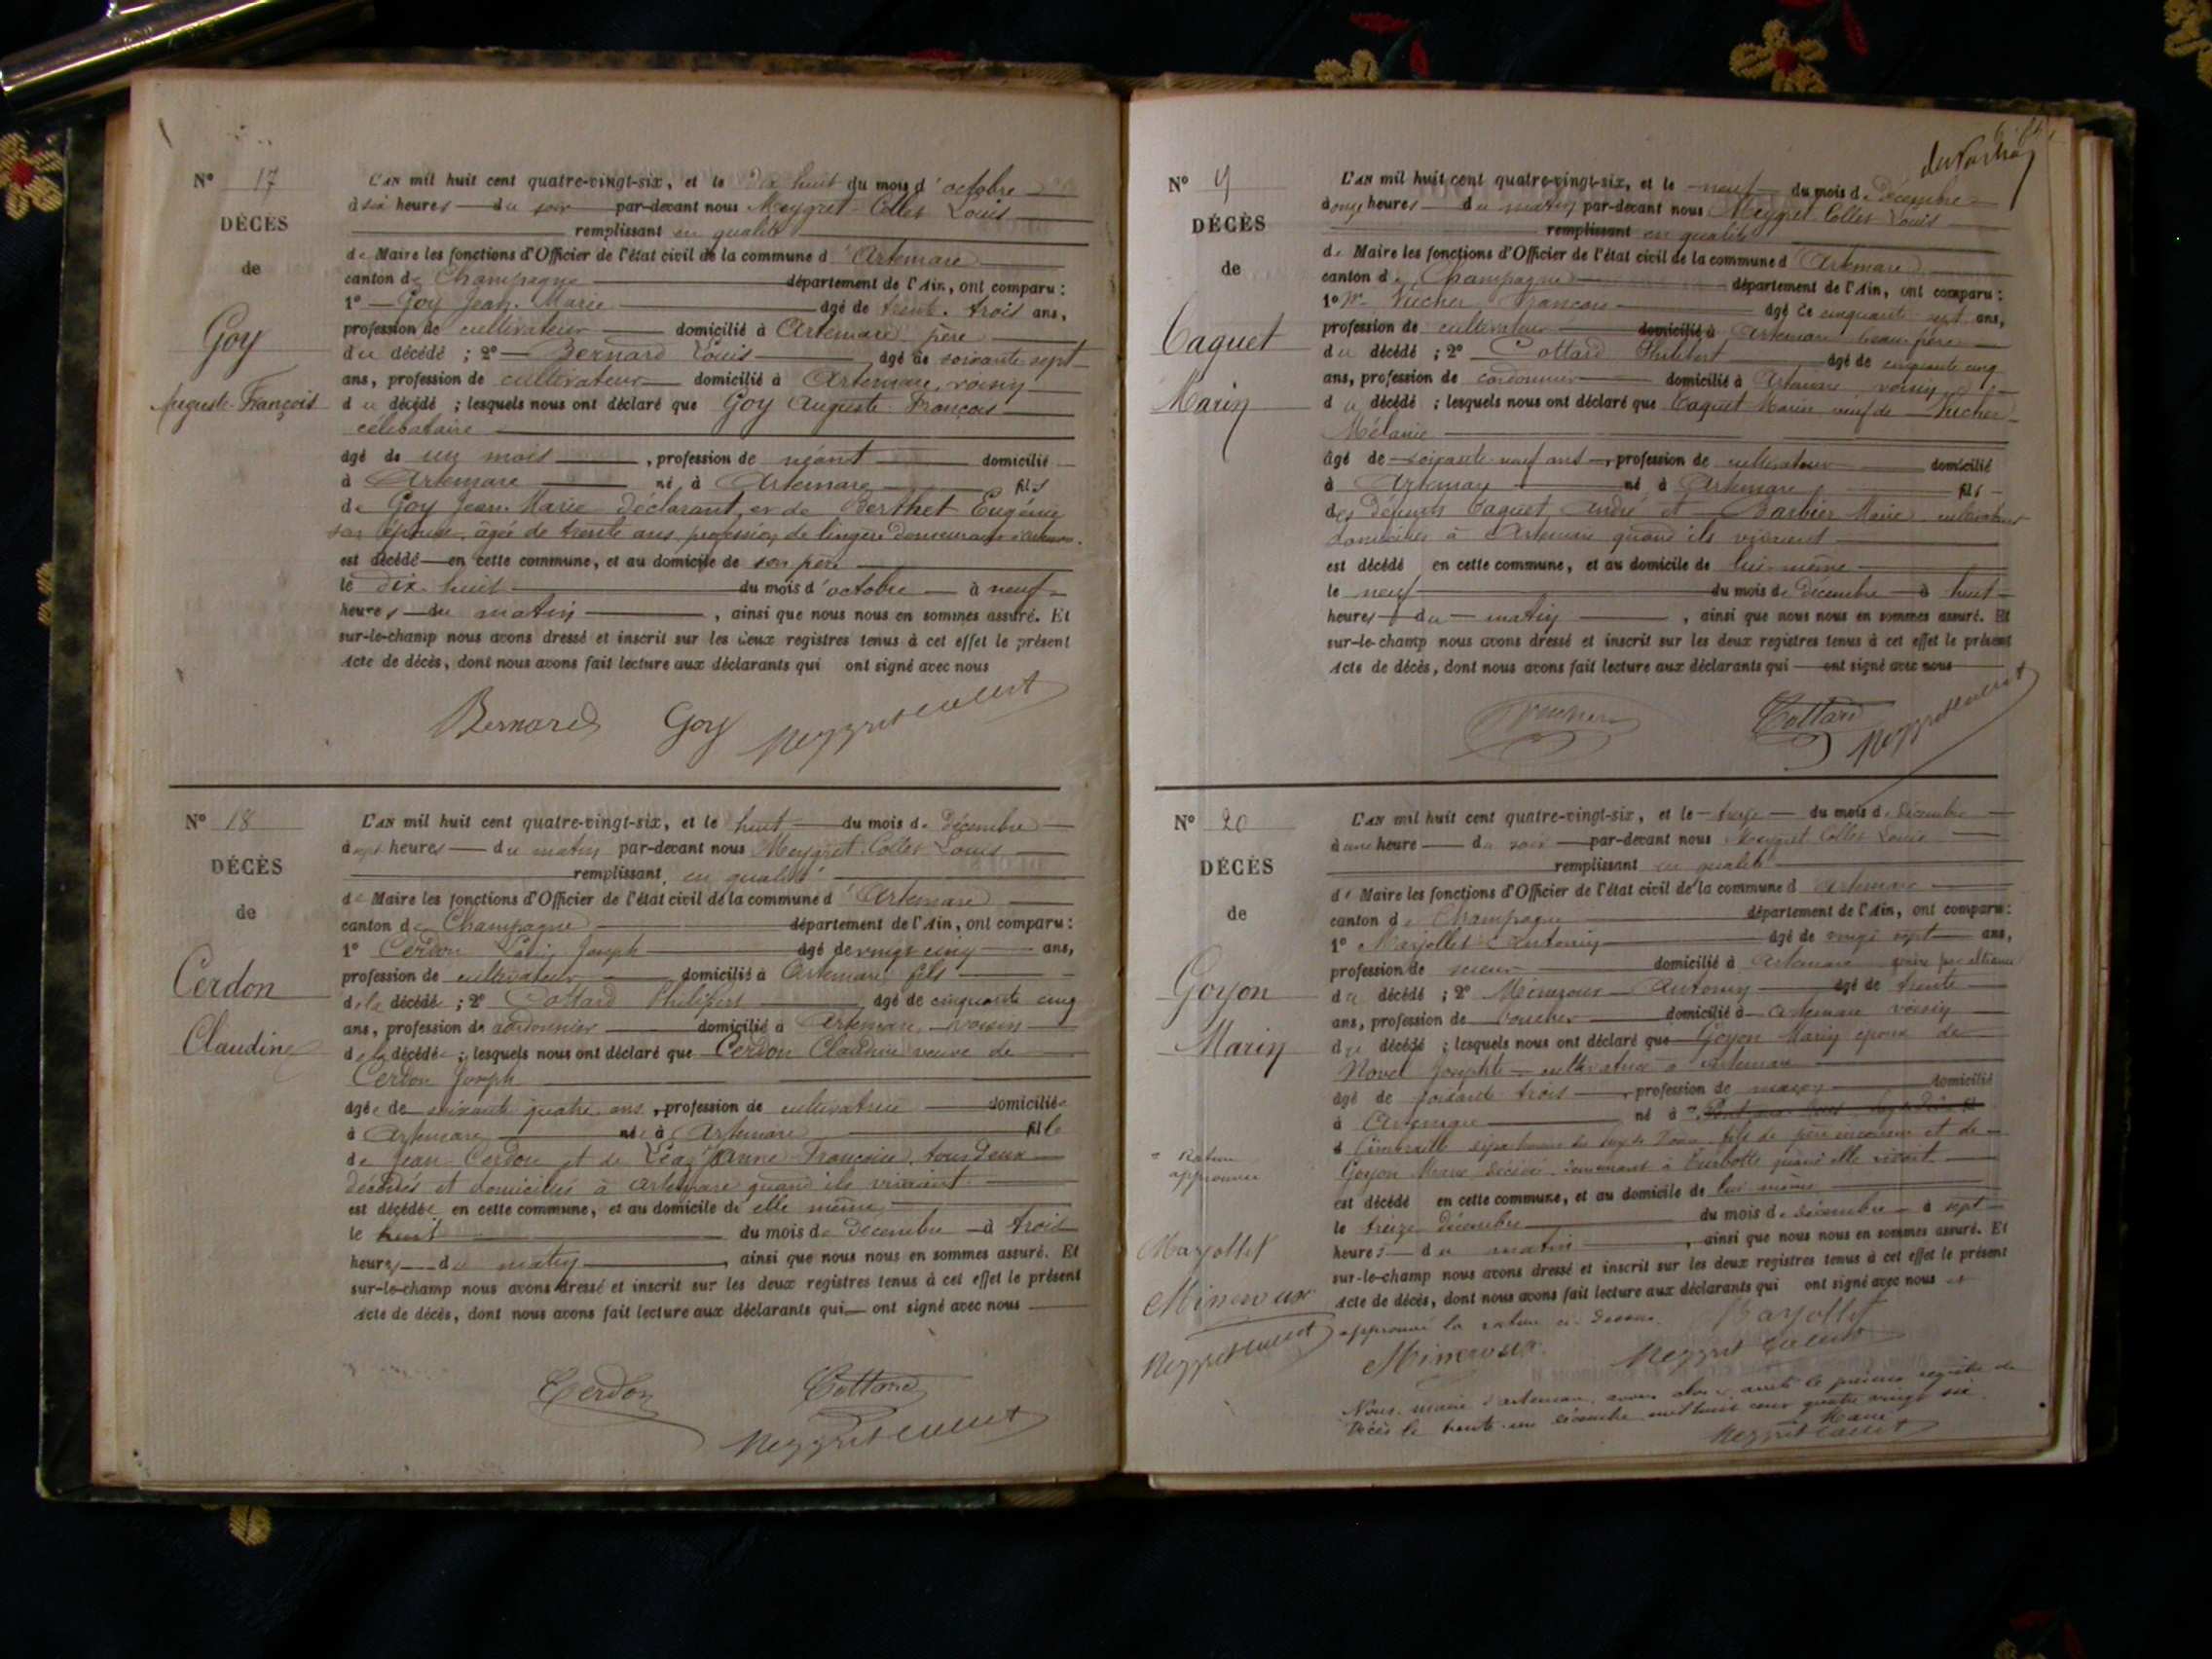 N° 17
DÉCÈS
de
Goy
Auguste François
L'AN mil huit cent quatre-vingt-six, et le dix huit du mois d'octobre
à six heures du soir par-devant nous Meygret Collet Louis
remplissant en qualité
de Maire les fonctions d'Officier de l'état civil de la commune d'Artemare
canton de Champagne département de l'Ain, ont comparu :
1° Goy Jean Marie âgé de trente trois ans,
profession de cultivateur domicilié à Artemare père
du décédé ; 2° Bernard Louis âgé de soixante sept
ans, profession de cultivateur domicilié à Artemare, voisin
du décédé ; lesquels nous ont déclaré que Goy Auguste François
célibataire
âgé de un mois, profession de néant domicilié
à Artemare né à Artemare fils
de Goy Jean Marie déclarant, et de Berthet Eugénie
son épouse, âgée de trente ans profession de lingère demeurant à Artemare.
est décédé en cette commune, et au domicile de son père
le dix huit du mois d'octobre à neuf
heures du matin, ainsi que nous nous en sommes assuré. Et
sur-le-champ nous avons dressé et inscrit sur les deux registres tenus à cet effet le présent
Acte de décès, dont nous avons fait lecture aux déclarants qui ont signé avec nous
Bernard Goy Meygret Collet
N° 18
DÉCÈS
de
Cerdon
Claudine
L'AN mil huit cent quatre-vingt-six, et le huit du mois de Décembre
à sept heures du matin par-devant nous Meygret Collet Louis
remplissant en qualité
de Maire les fonctions d'Officier de l'état civil de la commune d'Artemare
canton de Champagne département de l'Ain, ont comparu :
1° Cerdon Joseph âgé de vingt cinq ans,
profession de cultivateur domicilié à Artemare fils
de la décédée ; 2° Cottard Philibert âgé de cinquante cinq
ans, profession de cordonnier domicilié à Artemare voisin
de la décédée ; lesquels nous ont déclaré que Cerdon Claudine veuve de
Cerdon Joseph
âgée de soixante quatre ans, profession de cultivatrice domiciliée
à Artemare née à Artemare fille
de Jean Cerdon et de Anne Françoise, tous deux
décédés et domiciliés à Artemare quand ils vivaient
est décédée en cette commune, et au domicile de elle même
le huit du mois de Décembre à trois
heures du matin, ainsi que nous nous en sommes assuré. Et
sur-le-champ nous avons dressé et inscrit sur les deux registres tenus à cet effet le présent
Acte de décès, dont nous avons fait lecture aux déclarants qui ont signé avec nous
Cerdon Cottard
Meygret Collet
N° 19
DÉCÈS
de
Caquet
Marin
L'AN mil huit cent quatre-vingt-six, et le neuf du mois de Décembre
à onze heures du matin par-devant nous Meygret Collet Louis
remplissant en qualité
de Maire les fonctions d'Officier de l'état civil de la commune d'Artemare
canton de Champagne département de l'Ain, ont comparu :
1° Vucher François âgé de cinquante sept ans,
profession de cultivateur domicilié à Artemare beau père
du décédé ; 2° Cottard Philibert âgé de cinquante cinq
ans, profession de cordonnier domicilié à Artemare voisin
du décédé ; lesquels nous ont déclaré que Caquet Marin veuf de Vucher
Mélanie
âgé de soixante neuf ans, profession de cultivateur domicilié
à Artemare né à Artemare fils
des défunts Caquet André et Barbier Marie cultivateurs
domiciliés à Artemare quand ils vivaient
est décédé en cette commune, et au domicile de lui-même
le neuf du mois de Décembre à huit
heures du matin, ainsi que nous nous en sommes assuré. Et
sur-le-champ nous avons dressé et inscrit sur les deux registres tenus à cet effet le présent
Acte de décès, dont nous avons fait lecture aux déclarants qui ont signé avec nous
Vucher Cottard Meygret Collet
N° 20
DÉCÈS
de
Goyon
Marin
L'AN mil huit cent quatre-vingt-six, et le treize du mois de Décembre
à une heure du soir par-devant nous Meygret Collet Louis
remplissant en qualité
de Maire les fonctions d'Officier de l'état civil de la commune d'Artemare
canton de Champagne département de l'Ain, ont comparu :
1° Marjollet Antonin âgé de vingt sept ans,
profession de domicilié à Artemare par alliance
du décédé ; 2° Mineroux Antony âgé de trente
ans, profession de boucher domicilié à Artemare voisin
du décédé ; lesquels nous ont déclaré que Goyon Marin époux de
Novel Josephte cultivatrice à Artemare
âgé de soixante trois, profession de maçon domicilié
à Artemare né à
département du Puy de Dôme fils de père inconnu et de
Goyon Marie décédée demeurant à quand elle vivait
est décédé en cette commune, et au domicile de lui même
le treize décembre du mois de Décembre à sept
heures du matin, ainsi que nous nous en sommes assuré. Et
sur-le-champ nous avons dressé et inscrit sur les deux registres tenus à cet effet le présent
Acte de décès, dont nous avons fait lecture aux déclarants qui ont signé avec nous et
approuvé la rature ci dessus. Marjollet
Mineroux Meygret Collet
rature
approuvée
Marjollet
Mineroux
Meygret Collet
Nous, maire d'Artemare, avons clos et arrêté le présent registre de
Décès le trente un décembre mil huit cent quatre vingt six
Maire
Meygret Collet